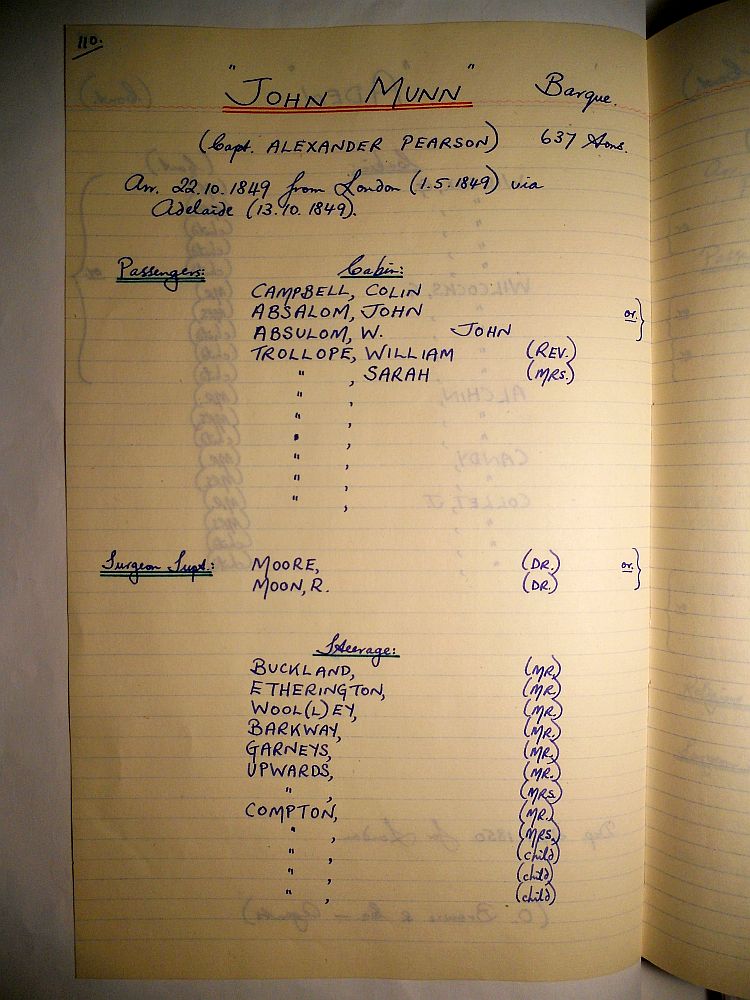 110.
"JOHN MUNN" Barque.
(Capt. ALEXANDER PEARSON) 637 tons.
Arr. 22.10.1849 from London (1.5.1849) via
Adelaide (13.10.1849).
Passengers: Cabin:
CAMPBELL, COLIN
ABSALOM, JOHN or }
ABSULOM, W. JOHN
TROLLOPE, WILLIAM (REV.)
" , SARAH (MRS.)
" ,
" ,
" ,
" ,
" ,
" ,
Surgeon Supt.: MOORE, (DR.) or }
MOON, R. (DR.)
Steerage:
BUCKLAND, (MR.)
ETHERINGTON, (MR.)
WOOL(L)EY, (MR.)
BARKWAY, (MR.)
GARNEYS, (MR.)
UPWARDS, (MR.)
" , (MRS.
COMPTON, (MR.)
" , (MRS.)
" , (child)
" , (child)
" , (child)